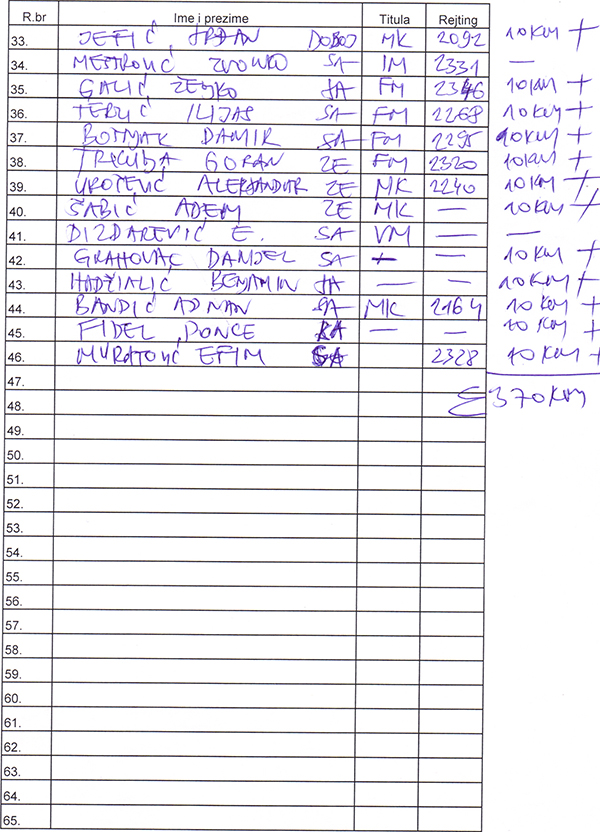 R.br Ime i prezime Titula Rejting
33. JEFIĆ, SRĐAN DOBOJ MK 2092 10KM +
34. MEŠTROVIĆ ZVONKO SA IM 2331 —
35. GALIĆ, ŽELJKO SA FM 2346 10KM +
36. TERLIĆ ILIJAS SA FM 2268 10KM +
37. BOŠNJAK DAMIR SA FM 2295 10KM +
38. TRKULJA GORAN ZE FM 2320 10KM +
39. UROŠEVIĆ ALEKSANDAR ZE MK 2240 10KM +
40. ŠABIĆ ADEM ZE MK — 10KM +
41. DIZDAREVIĆ E. SA VM — —
42. GRAHOVAC DANIJEL SA + — 10KM +
43. HADŽIALIĆ BENJAMIN SA — — 10KM +
44. BANDIĆ ADNAN SA MK 2164 10KM +
45. FIDEL, PONCE SA — — 10KM +
46. MURATOVIĆ EFIM SA 2328 10KM +
47.
48. Σ 370KM
49.
50.
51.
52.
53.
54.
55.
56.
57.
58.
59.
60.
61.
62.
63.
64.
65.